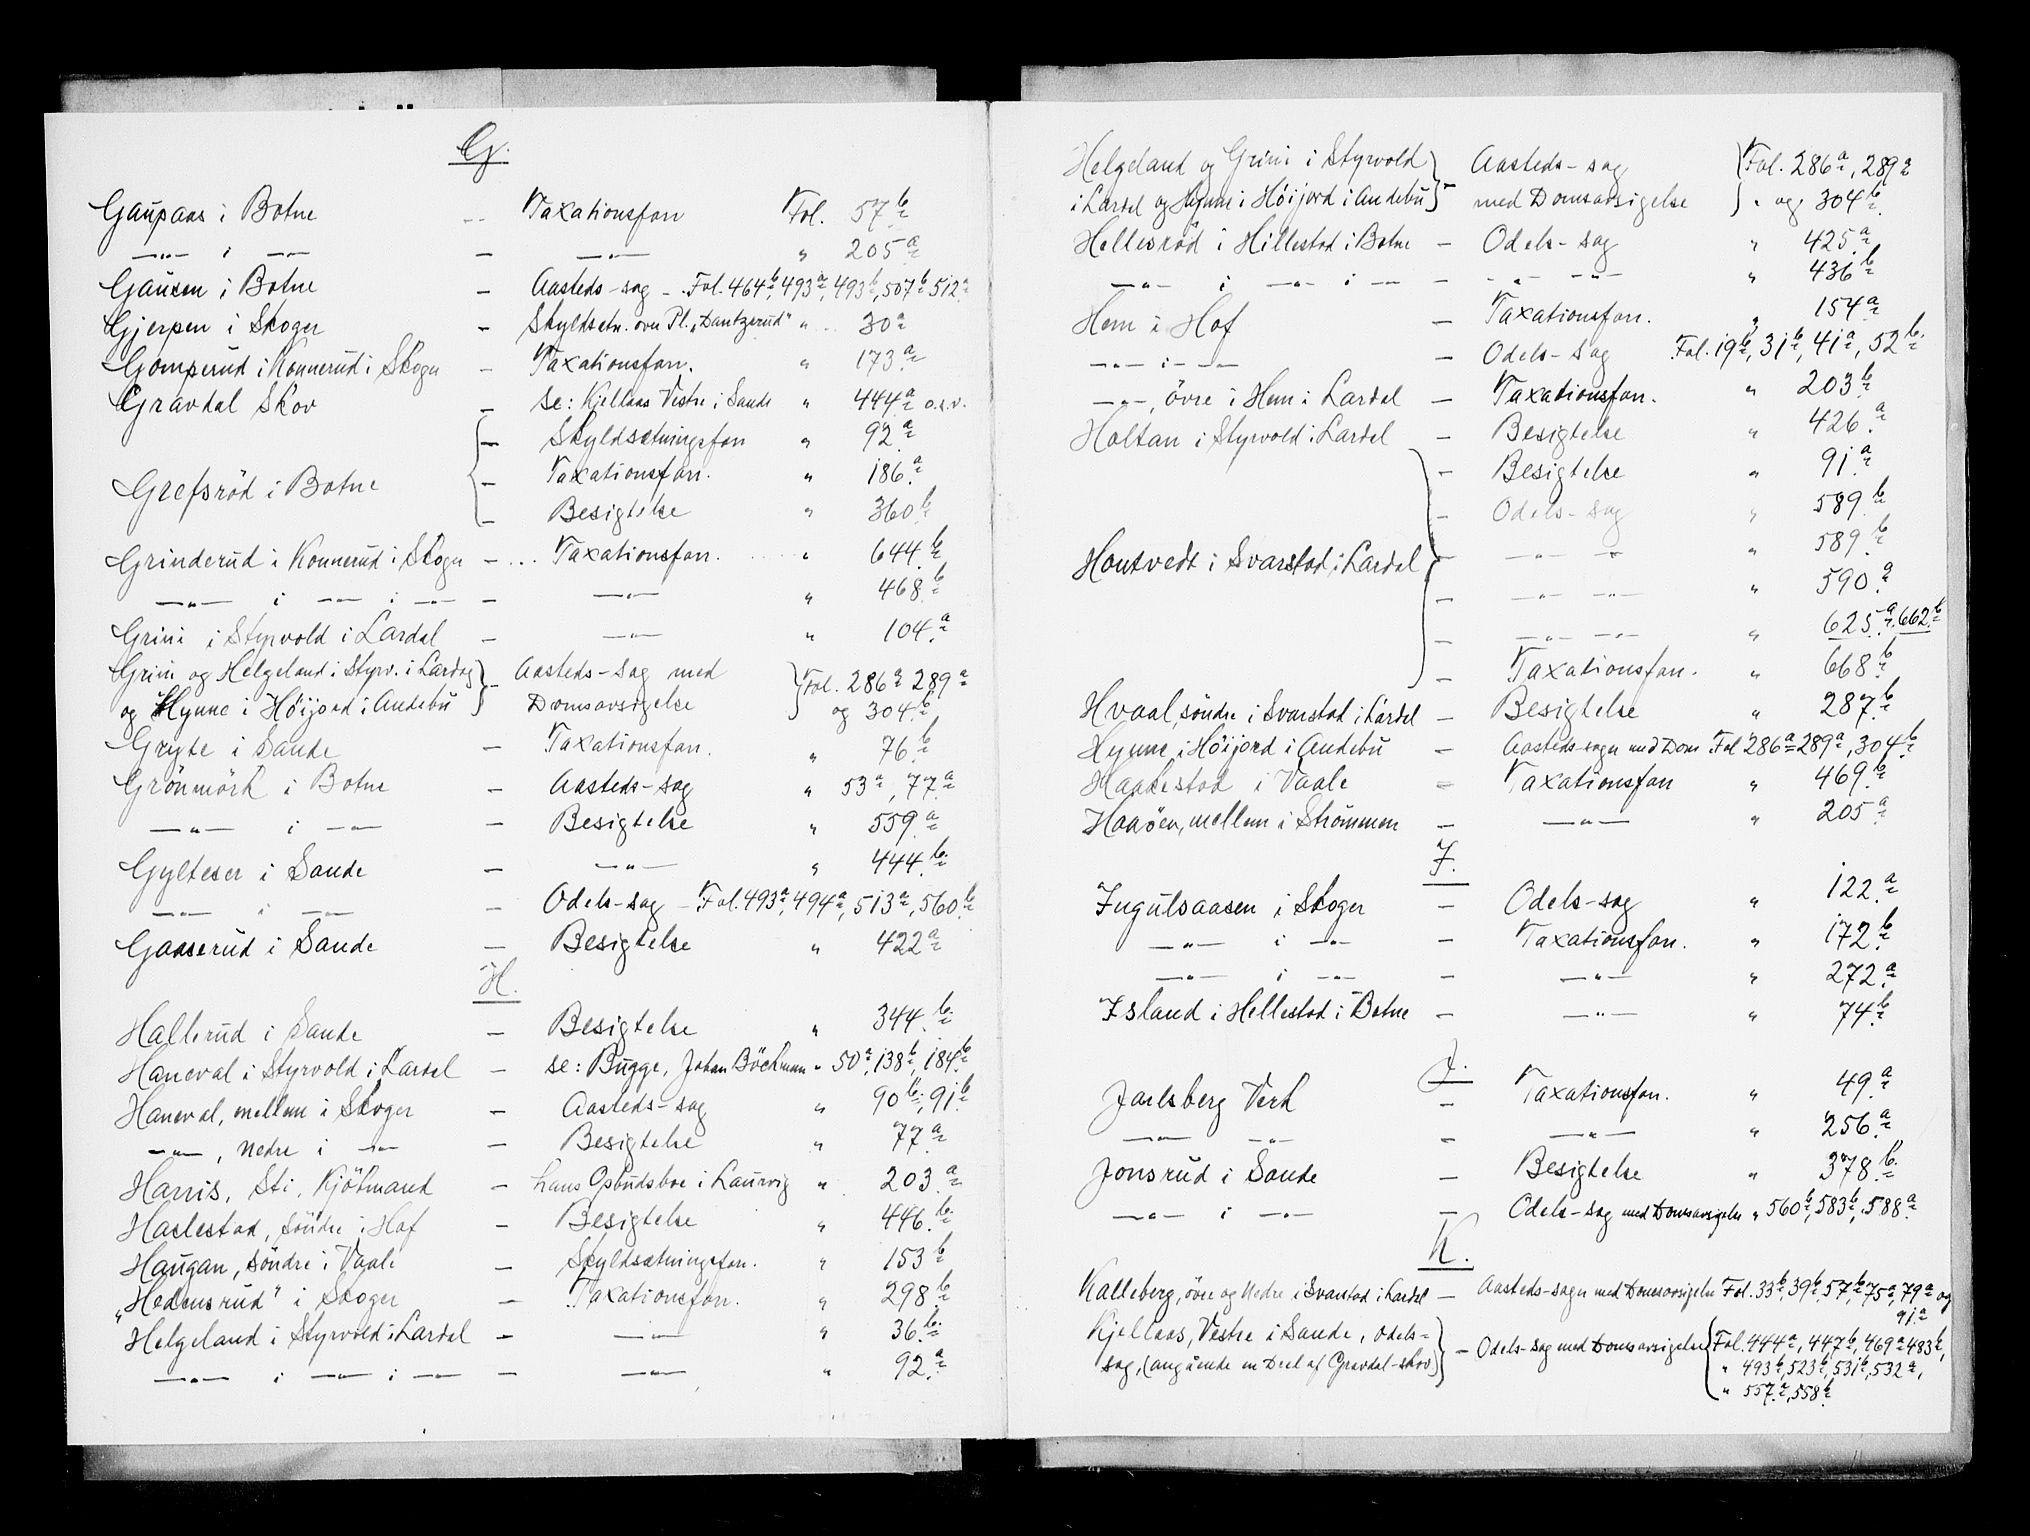 G.
Gaupaas i Botne -- Taxationsforr Fol. 57 b
—„— i —„— — —„— „ 205 a
Gausen i Botne — Aasteds-sag - Fol. 464 b, 493 a, 493 b, 507 b 512 a
Gjerpen i Skoger — Skyldsetn. over Pl. „Dantzerud" „ 30 a
Gomperud i Konnerud i Skoger — Taxationsforr. „ 173 a
Gravdal Skov — se: Kjellaas Vestre i Sande „ 444 a o.s.v.
— Skyldsætningsforr „ 92 a
Grefsröd i Botne — Taxationsforr. „ 186 a
— Besigtelse „ 360 b
Grinderud i Konnerud i Skoger — Taxationsforr. „ 644 b
—„— i —„— i —„— — —„— „ 468 b
Grini i Styrvold i Lardal — —„— „ 104 a
Grini og Helgeland i Styrv. i Lardal } - Aasteds-sag med } Fol. 286 a 289 a
og Hynne i Höijord i Andebu } Domsavsigelse } og 304 b
Gryte i Sande — Taxationsforr. „ 76 b
Grönmörk i Botne — Aasteds-sag „ 53 a, 77 a
—„— i —„— — Besigtelse „ 559 a
Gylteser i Sande — —„— „ 444 b
—„— i —„— — Odels-sag - Fol. 493 a, 494 a, 513 a, 560 b
Gaaserud i Sande — Besigtelse „ 422 a
H.
Hallerud i Sande — Besigtelse „ 344 b
Haneval i Styrvold i Lardal — se: Bugge, Johan Böckman „ 50 a, 138 b, 184 b
Haneval, mellem i Skoger — Aasteds-sag „ 90 b, 91 b
—„—, nedre i —„— — Besigtelse „ 77 a
Harris, Sti, Kjöbmand — hans Opbudsboe i Laurvig „ 203 a
Haslestad, söndre i Hof — Besigtelse „ 446 b
Haugan, söndre i Vaale — Skyldsætningsforr. „ 153 b
„Hedensrud" i Skoger — Taxationsforr. „ 298 b
Helgeland i Styrvold i Lardal — —„— „ 36 b
—„— i —„— i —„— — —„— „ 92 a
Helgeland og Grini i Styrvold } Aasteds-sag } Fol. 286 a, 289 a
i Lardal og Hynne i Höijord i Andebu } - med Domsavsigelse } „ og 304 b
Hellesröd i Hillestad i Botne — Odels-sag „ 425 a
—„— i —„— i —„— — —„— —„— „ 436 b
Hem i Hof — Taxationsforr. „ 154 a
—„— i —„— — Odels-sag Fol. 19 b, 31 b, 41 a, 52 b
—„—, övre i Hem i Lardal — Taxationsforr. „ 203 b
Holtan i Styrvold i Lardal — Besigtelse „ 426 a
— Besigtelse „ 91 a
— Odels-sag „ 589 b
Hontvedt i Svarstad i Lardal — —„— „ 589 b
— —„— —„— „ 590 a
— —„— —„— „ 625 a, 662 b
— Taxationsforr. „ 668 b
Hvaal, söndre i Svarstad i Lardal — Besigtelse „ 287 b
Hynne i Höijord i Andebu — Aasteds-sagn med Dom Fol 286 a 289 a, 304 b
Haakestad i Vaale — Taxationsforr „ 469 b
Haaöen, mellem i Strömmen — —„— „ 205 a
I.
Ingulsaasen i Skoger — Odels-sag „ 122 a
—„— i —„— — Taxationsforr. „ 172 b
—„— i —„— — —„— „ 272 a
Island i Hellestad i Botne — —„— „ 74 b
J.
Jarlsberg Verk — Taxationsforr. „ 49 a
—„— —„— — —„— „ 256 a
Jonsrud i Sande — Besigtelse „ 378 b
—„— i —„— — Odels-sag med Domsavsigelse „ 560 b, 583 b, 588 a
K.
Kalleberg, övre og Nedre i Svarstad i Lardal — Aasteds-sagn med Domsavsigelse Fol. 33 b, 39 b, 57 b, 75 a, 79 a og
91 a
Kjellaas, Vestre i Sande, odels-
sag, (angaaende en Deel af Gravdal-skov) } — Odels-sag med Domsavsigelse { Fol. 444 a, 447 b, 469 a 483 b,
„ 493 b, 523 b, 531 b, 532 a,
„ 557 a, 558 b